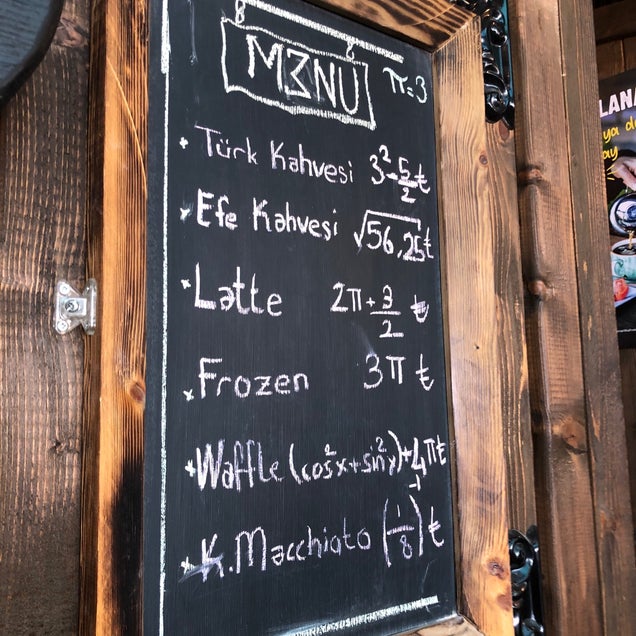 M3NU
π=3
Türk Kahvesi 3²-5/2 ₺
Efe Kahvesi √56,25 ₺
Latte 2π+3/2 ₺
Frozen 3π ₺
Waffle (cos²x+sin²x)+4π ₺
K. Macchiato (1/8)⁻¹ ₺
LANA
ya da
ay